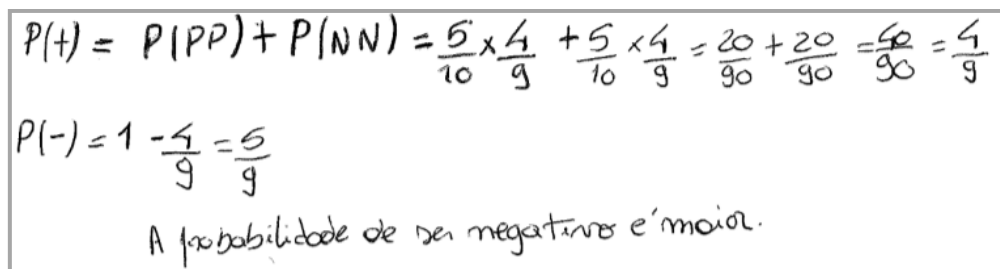 P(+) = P(PP) + P(NN) = 5/10 × 4/9 + 5/10 × 4/9 = 20/90 + 20/90 = 40/90 = 4/9
P(-) = 1 - 4/9 = 5/9
A probabilidade de ser negativo é maior.